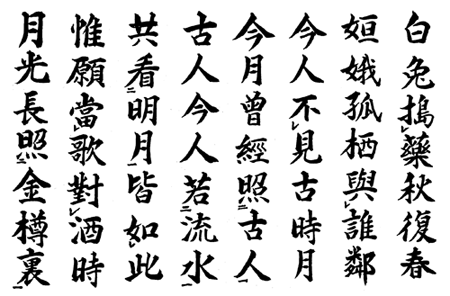 白兔搗㆑藥秋復春
姮娥孤栖與㆑誰鄰
今人不㆑見古時月
今月曾經照㆓古人㆒
古人今人若㆓流水㆒
共看㆓明月㆒皆如㆑此
惟願當㆑歌對㆑酒時
月光長照㆓金樽裏㆒